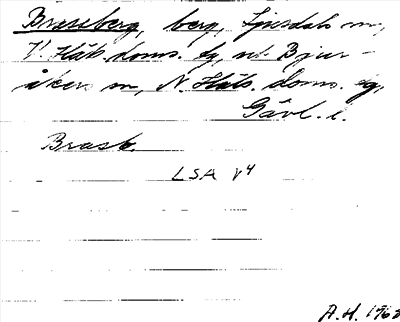 Braseberg, berg, Ljusdals sn,
V. Häls. doms. sg, vt Bjur-
åkers sn, N. Häls. doms. sg,
Gävl. l.
Brask.
LSA V4
A.H. 1968